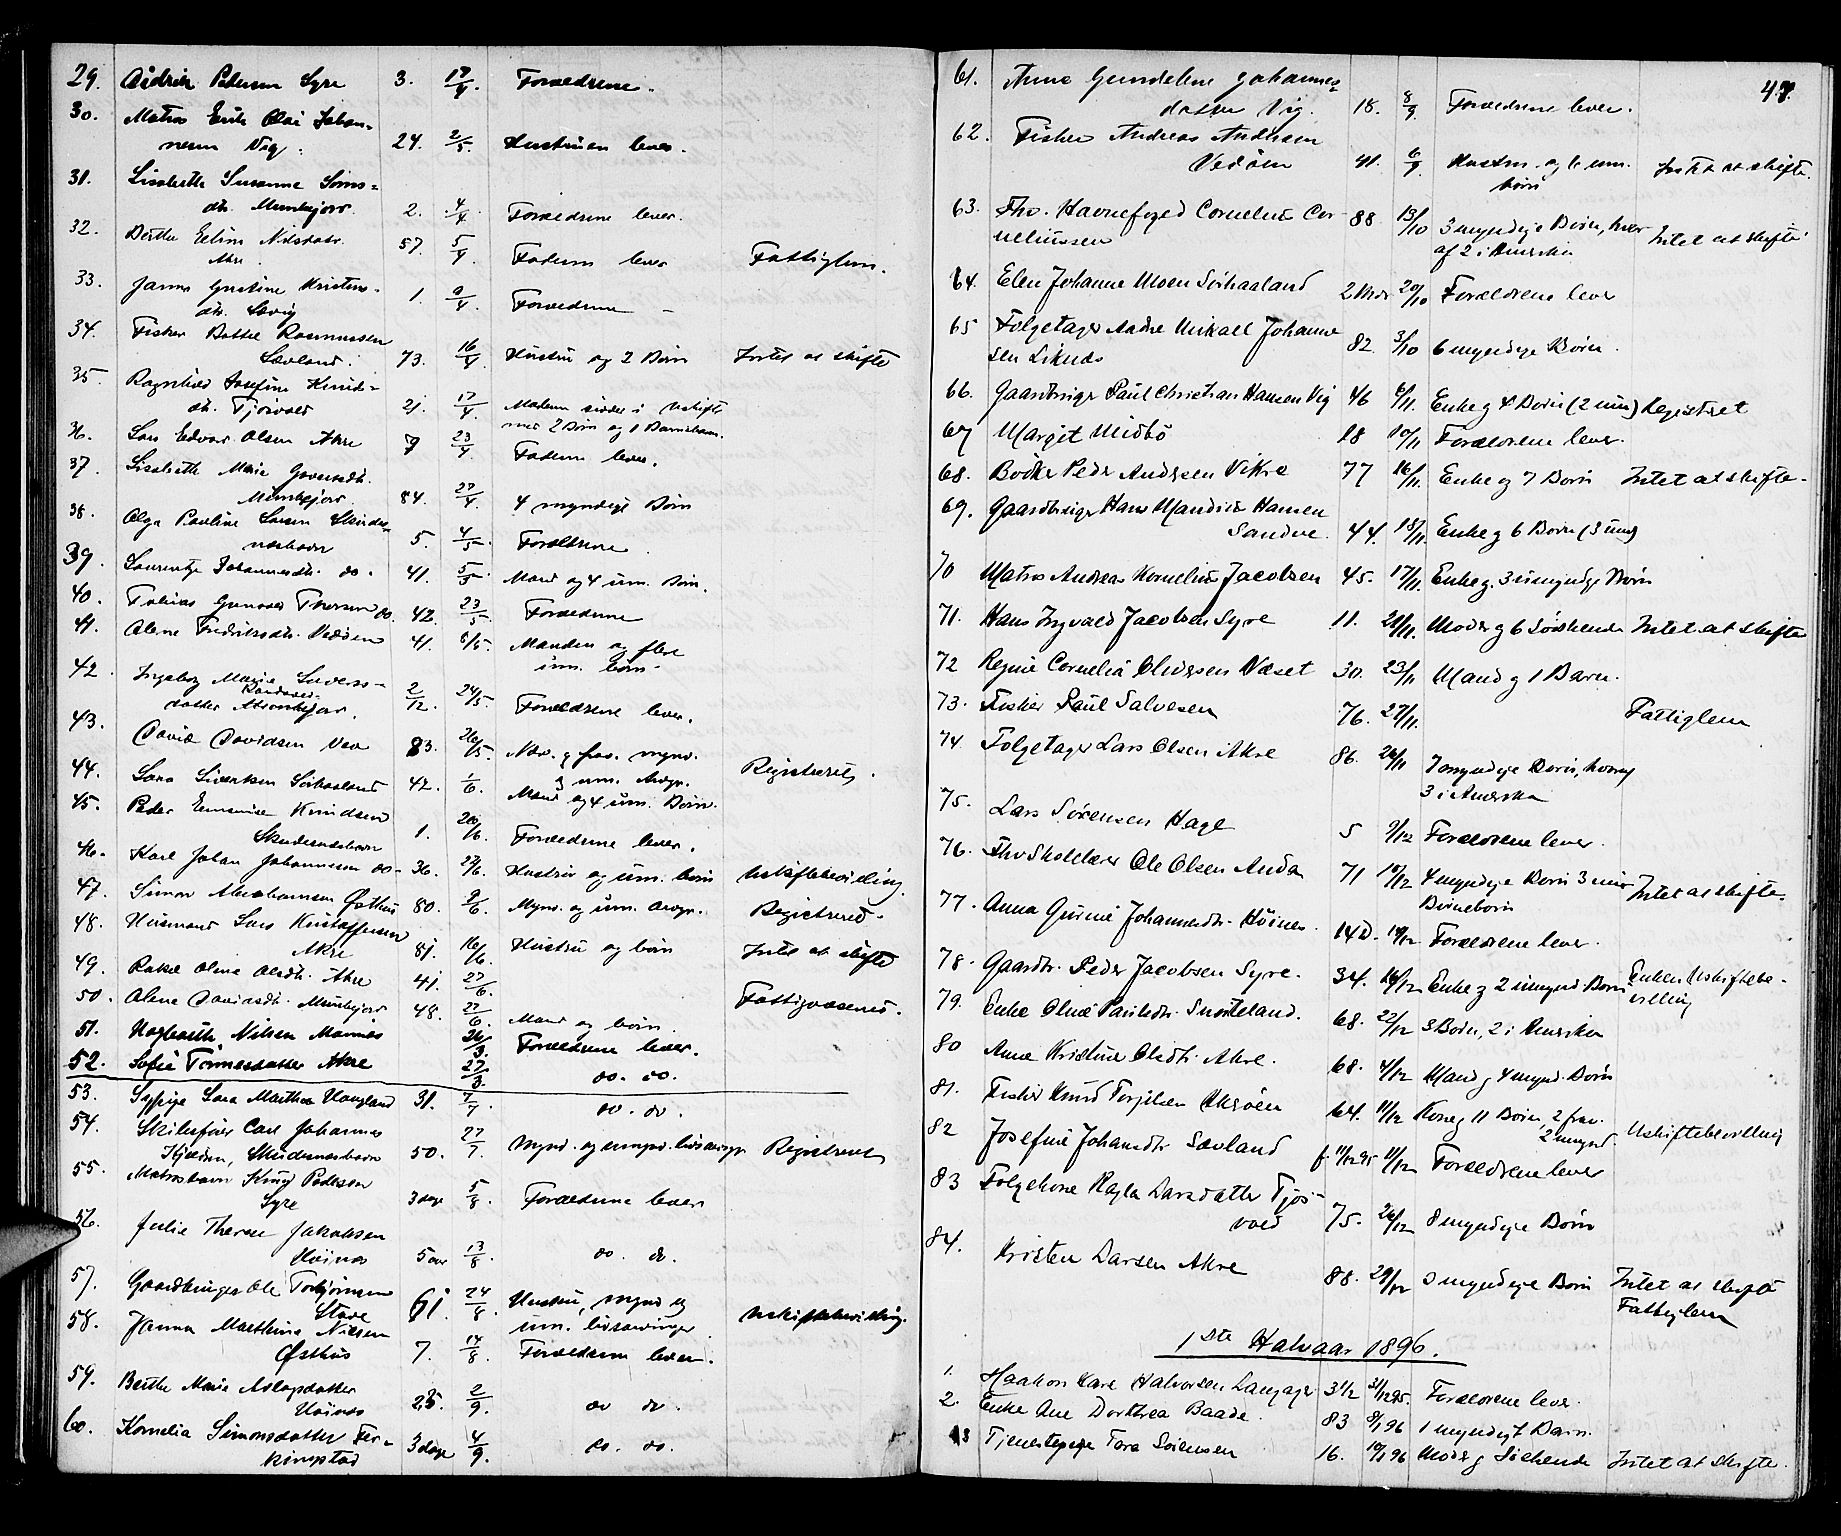 29. Didrik Pedersen Syre 3. 17/4. Forældrene.
30. Matros Erik Olai Johan-
nesen Vig. 24. 2/5. Hustruen lever.
31. Lisabeth Susanne Søms-
dtr. Munkejord. 2. 4/4. Forældrene lever.
32. Berthe Eelina Nilsdatr.
Akre. 57. 5/4 Faderen lever Fattiglem.
33. Janna Gustine Kristens-
dtr. Sævig 1. 9/4 Forældrene -
34. Fisker Rasmussen
Sævland. 73. 16/4 Hustru og 2 Børn Intet at skifte
35. Ragnhild Josefine Knuds-
dtr. Tjøsvold 21. 17/4. Moderen sidder i Uskifte
med 2 Børn og 1 Barnebarn.
36. Lars Edvard Olsen Akre 9 23/4. Faderen lever.
37. Lisabeth Marie Goversdtr.
Munkejord. 84. 27/4. 4 myndige Børn
38. Olga Pauline Larsen Skudes-
neshavn 5. 4/5. Forældrene
39. Laurentze Johannesdtr. do. 41. 5/5. Mand og 4 um. Børn.
40. Tobias Gunvald Thorsen do. 42. 23/5. Forældrene
41. Olene Fredriksdtr. Vedøen 41. 8/5. Manden og flere
um. børn.
42. Ingeborg Marie Sivers-
datter Munkejord. 2/12. 24/5. Forældrene lever.
43. David Davidsen Vea 83. 26/5. Nær. g frav. mynd.
g um. Arvgr. Registreret.
44. Lars Sivertsen Sørhaaland 42. 1/6. Mand og 4 um. Børn.
45. Peder Enevald Knudsen
Skudesneshavn 1. 20/6. Forældrene lever.
46. Karl Johan Johannesen do- 36. 27/6. Hustru og um. børn Uskiftebevilling.
47. Simon Abrahamsen Østhus 80. 9/6. Mynd. og um. Arvgr. Registreret.
48. Husmand Lars Kristoffersen
Akre 81. 16/6. Hustru og børn Intet at skifte
49. Rakel Olena Olsdtr. Akre 41. 27/6.
50. Olena Davidsdtr. Munkejord 48. 27/6. Mand og børn. Fattigvæsenet.
51. Hagbarth Nilsen Mannes 26/3. Forældrene lever.
52. Sofie Tønnesdatter Akre 27/3. do. do.
53. Sypige Sara Martha Haugland 31. 7/7 do. do.
54. Skibsfører Carl Johannes
Kjelden, Skudesneshavn 50. 27/7. Mynd. og umynd. livsarvgr Registreret
55. Matrosbarn Knud Pedersen
Syre 3 dage 5/8. Forældrene lever
56. Julie Therese Jakobsen
Høinæs 5 aar 13/8. do. do.
57. Gaardbruger Ole Torbjørnsen
Stave 61. 24/8. Hustru, mynd og
um. livsarvinger. Uskiftebevilling.
58. Janna Marthine Nilsen
Østhus 7. 14/8. Forældrene lever.
59. Berthe Marie Aslagsdatter
Høinæs 25. 2/9. do do.
60. Kornelia Simonsdatter Fer-
kingstad 3 dage 4/9. do. do.
47.
61. Anna Gundeline Johannes-
datter Vig. 18. 8/9 Forældrene lever.
62. Fisker Andreas Andersen
Vedøen 41. 6/9. Hustru og 6 um. Intet at skifte.
børn
63. Fhv. Havnefoged Cornelius Cor-
neliussen 88 13/10 3 myndige Børn, hvor-
af 2 i Amerika Intet at skifte
64. Elen Johanne Olsen Sørhaaland 2 Mdr 20/10 Forældrene lever
65 Følgetager Andre Mikael Johanne-
sen Liknes 82. 3/10 6 myndige Børn.
66. Gaardbruger Paul Christian Hansen Vig 46 6/11. Enke g 4 Børn (2 um) Registret
67 Margit Midbø 18 10/11 Forældrene lever.
68. Bødker Peder Andersen Vikre 77 16/11. Enke og 7 Børn Intet at skifte.
69. Gaardbruger Hans Mandius Hansen
Sandve. 44. 18/11. Enke g 6 Børn (3 um)
70 Matros Andreas Kornelius Jacobsen 45. 17/11. Enke g. 3 umyndige Børn
71. Hans Ingvald Jacobsen Syre 11. 21/11. Moder g 6 Søskende Intet at skifte
72 Regine Cornelia Olversen Næset 30. 23/11 Mand g 1 Barn.
73. Fisker Paul Salvesen 76. 27/11. Fattiglem
74. Følgetager Lars Olsen Akre 86. 24/11 7 myndige Børn, hvoraf
3 i Amerika
75. Lars Sørensen Hage 5 9/12 Forældrene lever.
76. Fhv Skolelærer Ole Olsen Anda 71 10/12 4 myndige Børn 3 um
Børnebørn Intet at skifte.
77. Anna Gurine Johannesdtr. Høines. 14 D. 14/12 Forældrene lever.
78. Gaardbr. Peder Jacobsen Syre. 34. 16/12 Enke g 2 umynd. Børn Enken Uskiftebe-
villing
79. Enke Oline Paulsdtr. Snørteland. 68. 22/12 3 Børn, 2 i Amerika
80 Anna Kristine Olsdtr. Akre. 68. 4/12 Mand g 4 mynd. Børn
81. Fisker Knud Torgilsen Akreen 64. 11/12 Kone g 11 Børn, 2 frav.
2 umynd. Uskiftebevilling
82 Josefine Johannesdtr. Sævland f 11/12 95 11/12 Forældrene lever
83 Følgekone Ragla Larsdatter Tjøs-
vold 75. 26/12 8 myndige Børn
84. Kristen Larsen Akre 88. 29/12 3 myndige Børn Intet at skifte
Fattiglem
1ste Halvaar 1896.
1. Haakon Kare Halvorsen Langager 3 1/2 31/12 95. Forældrene lever.
2. Enke Ane Dorthea Baade. 83 8/1 96 1 myndigt Barn.
3 Tjenestepige Tora Sørensen 16. 19/1 96 Moder g Søskende Intet at skifte.